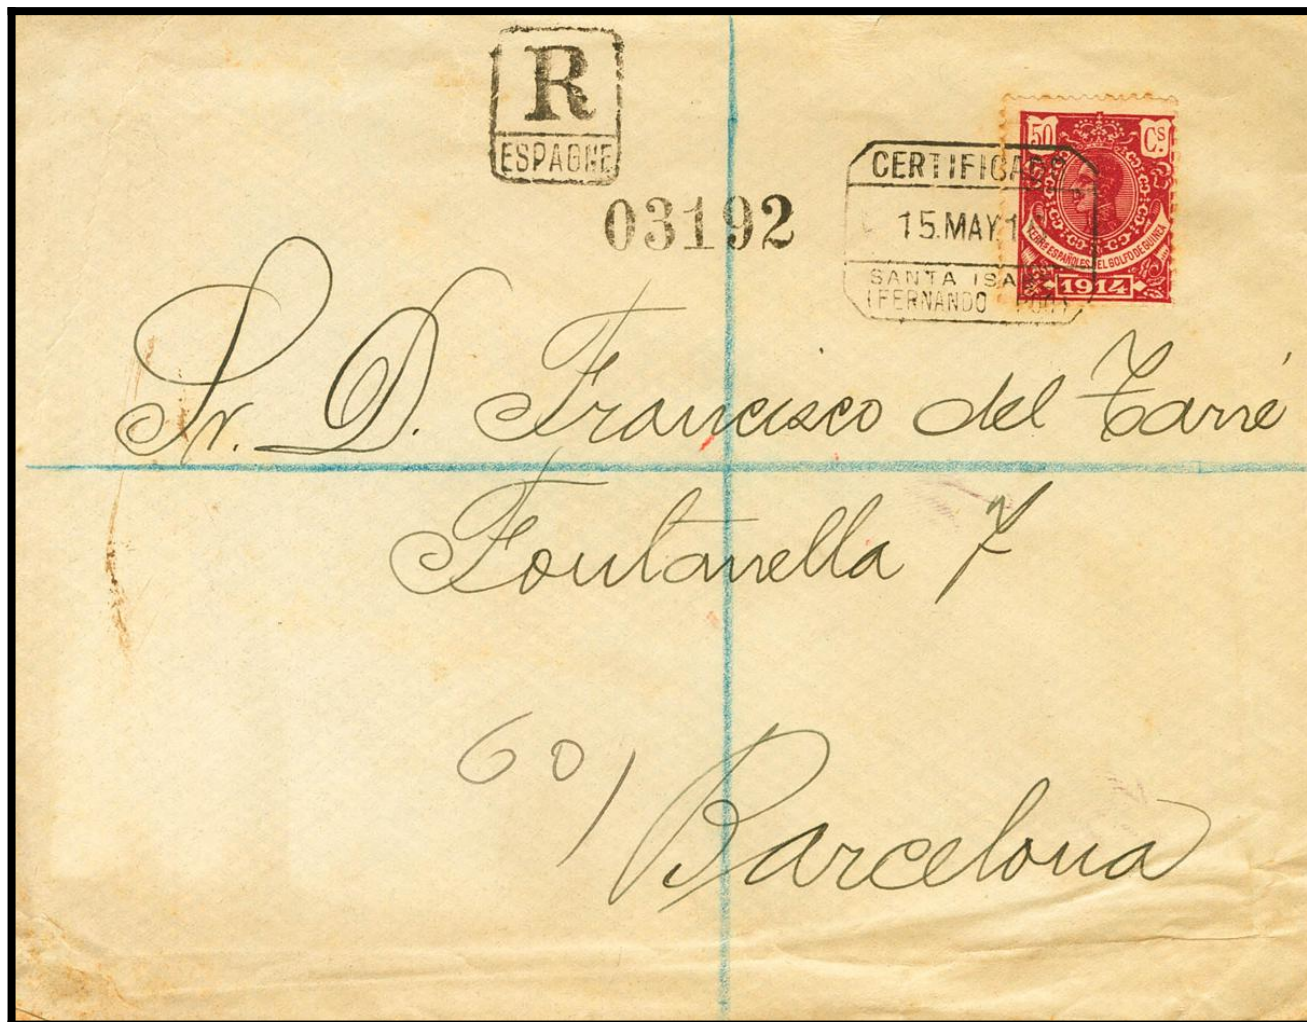 R
ESPAGNE
03192
50 Cs
CERTIFICADO
15.MAY 1
SANTA ISABEL
(FERNANDO POO)
TERRS ESPAÑOLES DEL GOLFO DE GUINEA
1914
Sr. D. Francisco del Tarré
Fontanella 7
601
Barcelona